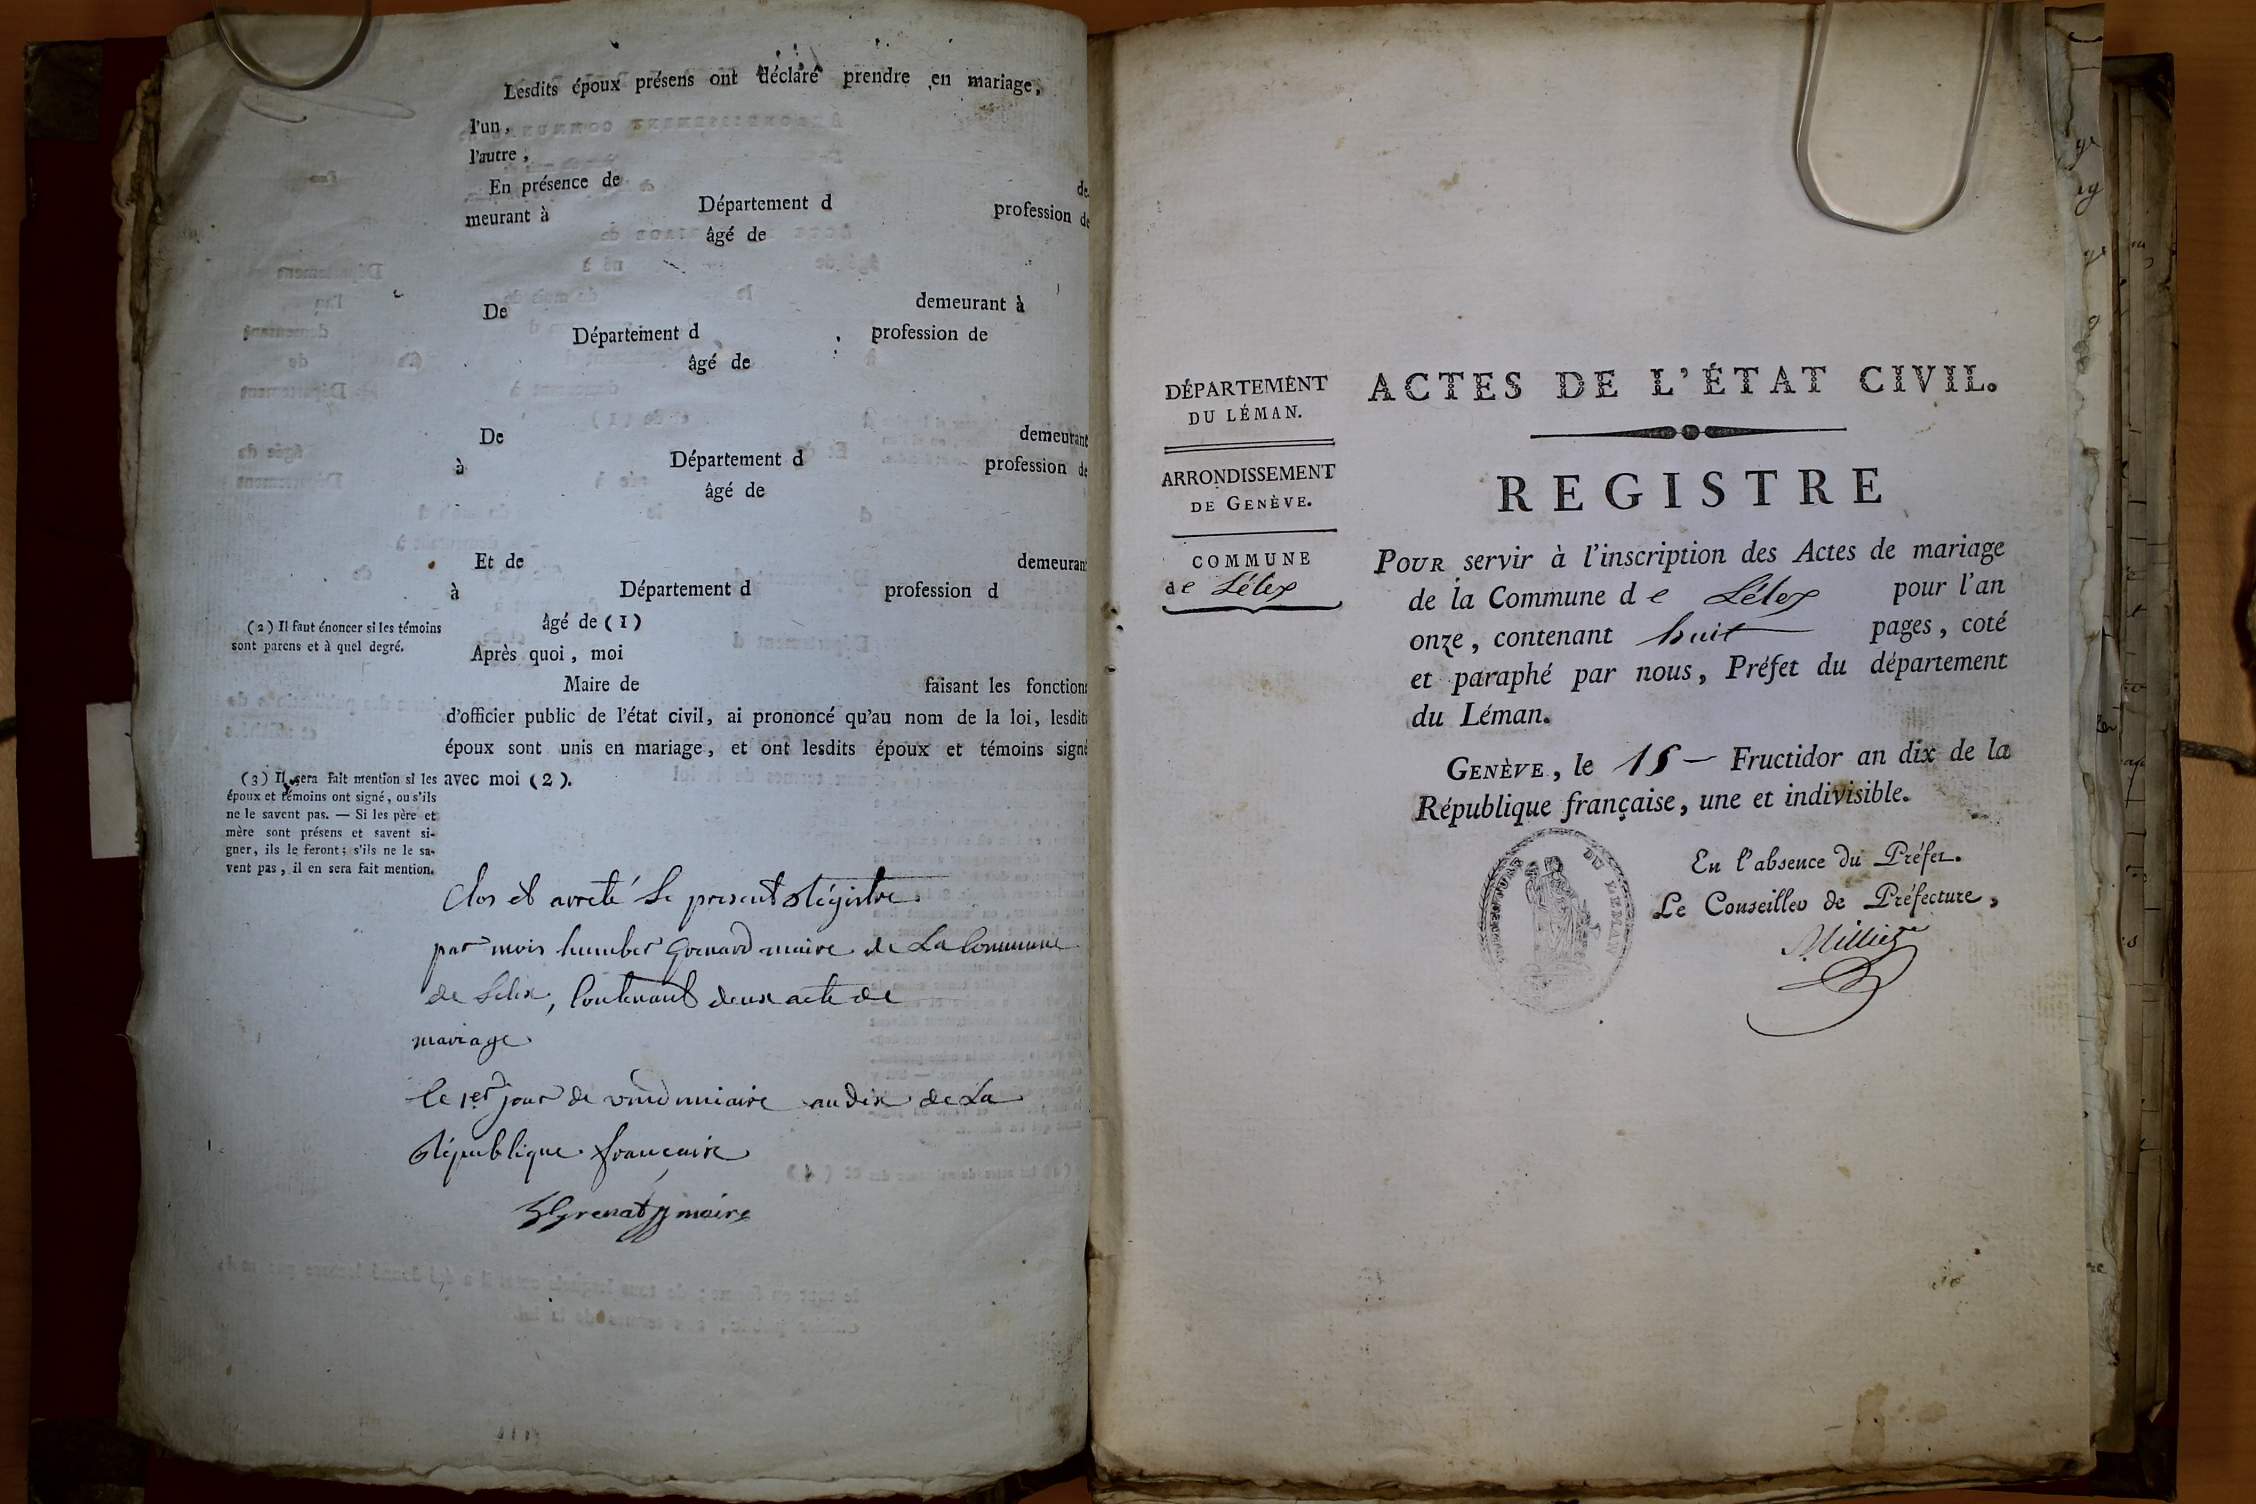 Lesdits époux présens ont déclaré prendre en mariage,
l'un,
l'autre,
En présence de de
meurant à Département d profession de
âgé de
De demeurant à
Département d profession de
âgé de
De demeurant
à Département d profession de
âgé de
Et de demeurant
à Département d profession d
âgé de (1)
Après quoi, moi
Maire de faisant les fonctions
d'officier public de l'état civil, ai prononcé qu'au nom de la loi, lesdits
époux sont unis en mariage, et ont lesdits époux et témoins signé
avec moi (2).
(2) Il faut énoncer si les témoins
sont parens et à quel degré.
(3) Il sera fait mention si les
époux et témoins ont signé, ou s'ils
ne le savent pas. — Si les père et
mère sont présens et savent si-
gner, ils le feront; s'ils ne le sa-
vent pas, il en sera fait mention.
Clos et arreté le present Régistre
par mois humber Grenard maire de La Commune
de Lelex, Contenant deux acte de
mariage
le 1er jour de vendmiaire an dix de La
République francaise
Grenard maire
DÉPARTEMENT
DU LÉMAN.
ARRONDISSEMENT
DE GENÈVE.
COMMUNE
de Lélex
ACTES DE L'ÉTAT CIVIL.
REGISTRE
POUR servir à l'inscription des Actes de mariage
de la Commune de Lélex pour l'an
onze, contenant huit pages, coté
et paraphé par nous, Préfet du département
du Léman.
GENÈVE, le 15 — Fructidor an dix de la
République française, une et indivisible.
DU LEMAN
En l'absence du Préfet.
Le Conseiller de Préfecture,